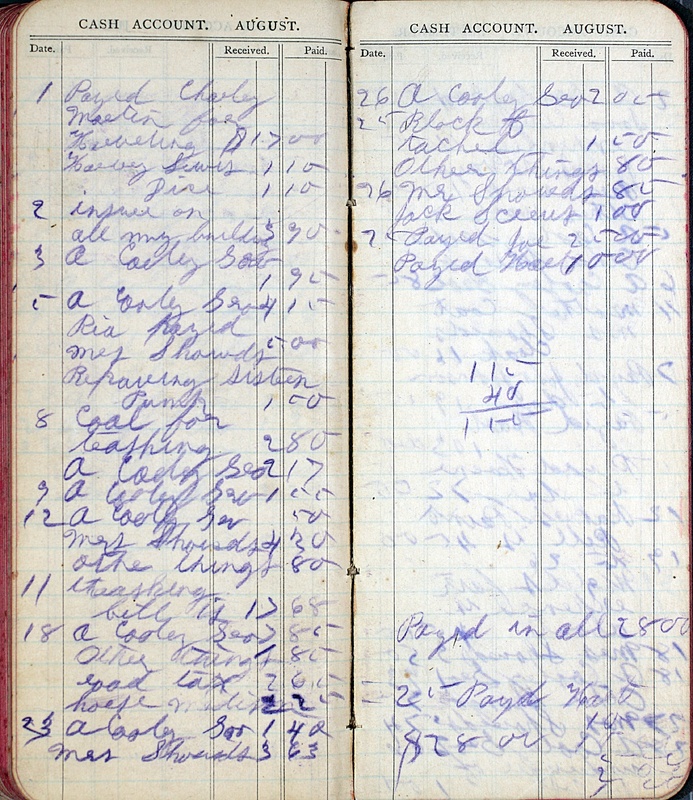 CASH ACCOUNT. AUGUST.
Date. Received. Paid.
1 Payed Charley
Martin for
$17 00
Harvey Lewis 1 10
1 10
2 insure on
all my builds 3 90
3 A Cooley Son
1 95
5 A Cooley Son 4 15
Ria Payed
Mrs Showds 5 00
Repairing Sistern
Pump 1 50
8 Coal for
teashing 2 80
A Cooley Son 2 17
9 A Cooley Son 1 55
12 A Cooly Son 50
Mrs Showds 4 30
othe things 80
11 theashing
bill is 17 68
18 A Cooley Son 7 85
Other things 1 85
road tax 2 65
23 A Cooley Son 1 40
Mrs Showds 3 63
CASH ACCOUNT. AUGUST.
Date. Received. Paid.
26 A Cooley Son 2 05
25 Block &
tachel 1 50
Other things 85
26 Mr Showds 85
Jack 1 00
25 Payed Joe 25 00
Payed 10 00
115
40
155
Payed in all 28 00
25 Payd
$28 or